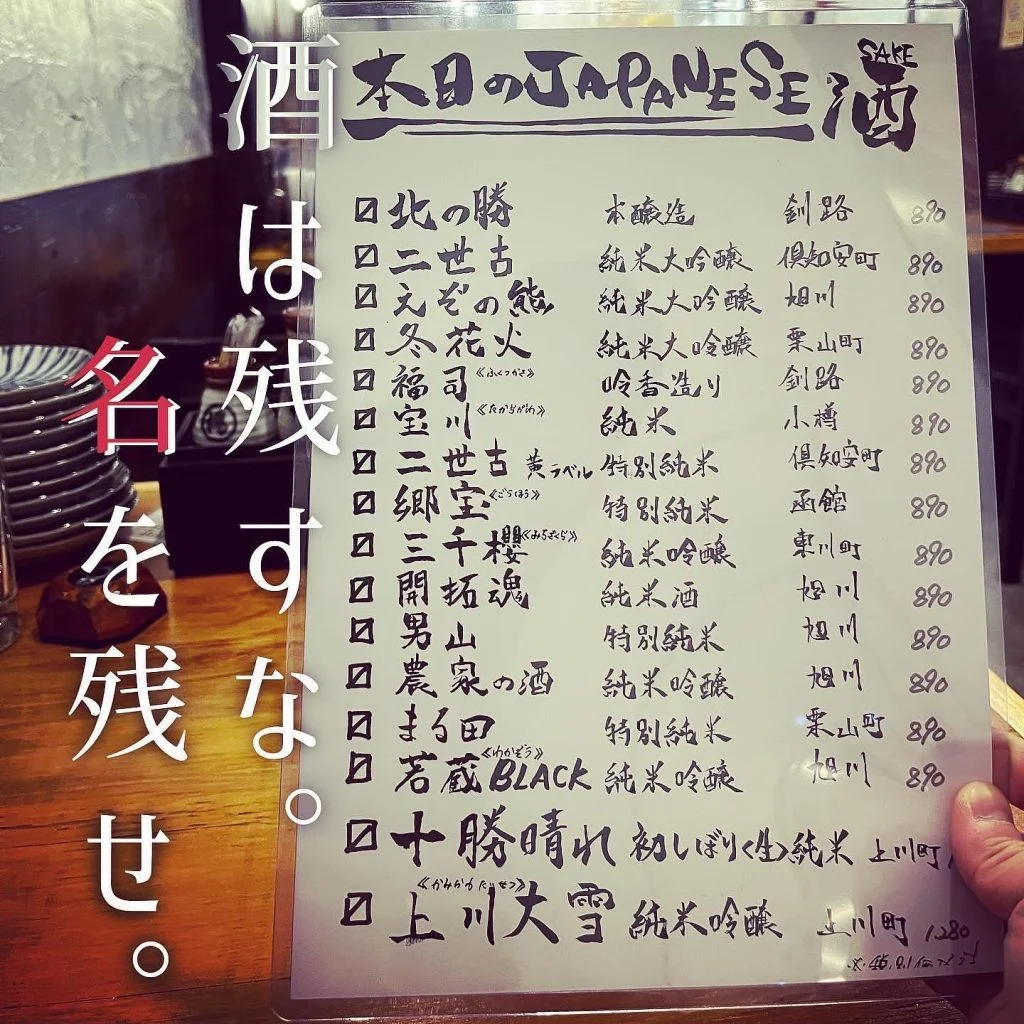 酒は残すな。
名を残せ。
本日のJAPANESE 酒
SAKE
北の勝 本醸造 釧路 890
二世古 純米大吟醸 倶知安町 890
えぞの熊 純米大吟醸 旭川 890
冬花火 純米大吟醸 栗山町 890
福司《ふくつかさ》 吟香造り 釧路 890
宝川《たからがわ》 純米 小樽 890
二世古 黄ラベル 特別純米 倶知安町 890
郷宝《ごうほう》 特別純米 函館 890
三千櫻《みちざくら》 純米吟醸 東川町 890
開拓魂 純米酒 旭川 890
男山 特別純米 旭川 890
農家の酒 純米吟醸 旭川 890
まる田 特別純米 栗山町 890
若蔵《わかぞう》BLACK 純米吟醸 旭川 890
十勝晴れ 初しぼり〈生〉純米 上川町
上川大雪《かみかわたいせつ》 純米吟醸 上川町 1280